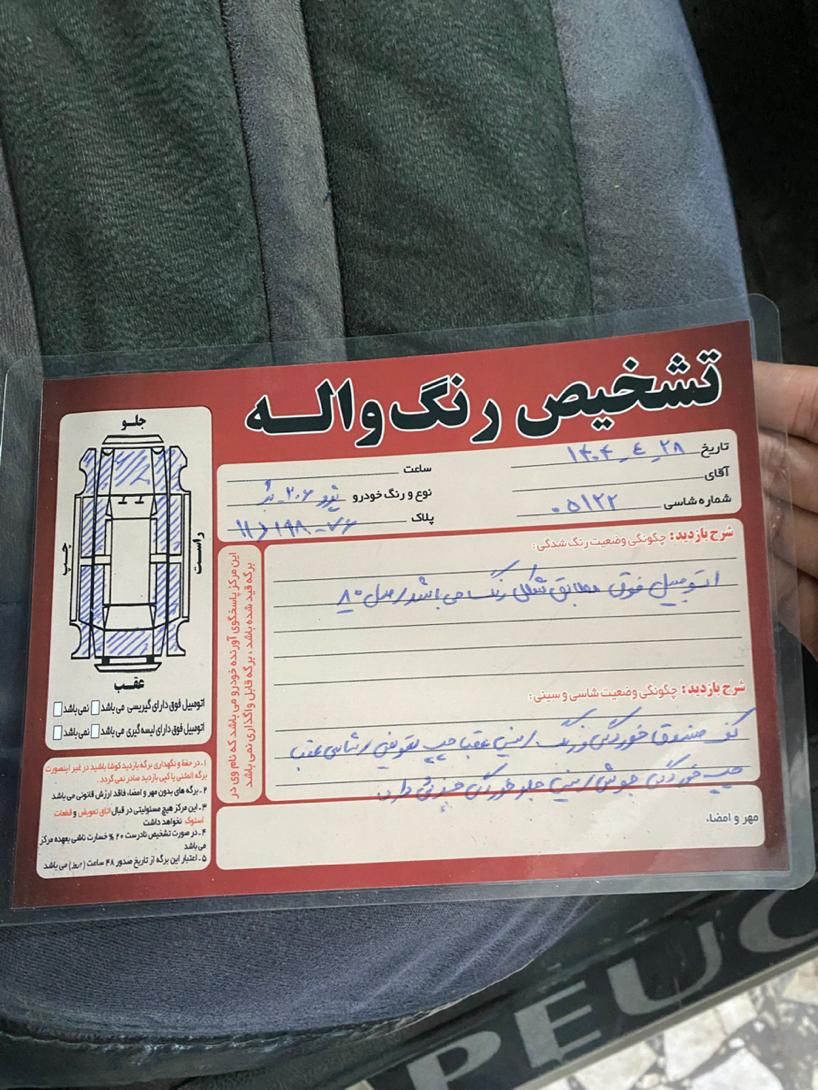 تشخیص رنگ واله
تاریخ ۱۴۰۴_۴_۲۸
ساعت
آقای
نوع و رنگ خودرو پژو ۲۰۶_
شماره شاسی ۰۵۱۲۲
پلاک
جلو
چپ
راست
عقب
اتومبیل فوق دارای گیریسی می باشد نمی باشد
اتومبیل فوق دارای لیسه گیری می باشد نمی باشد
۱- در حفظ و نگهداری برگه بازدید کوشا باشید در غیر اینصورت
برگه المثنی یا کپی بازدید صادر نمی گردد.
۲- برگه های بدون مهر و امضاء، فاقد ارزش قانونی می باشد
۳- این مرکز هیچ مسئولیتی در قبال اتاق تعویض و قطعات
استوک نخواهد داشت
۴- در صورت تشخیص نادرست ۲۰ % خسارت ناشی بعهده مرکز
می باشد
۵- اعتبار این برگه از تاریخ صدور ۴۸ ساعت می باشد
این مرکز پاسخگوی آورنده خودرو می باشد که نام وی در
برگه قید شده باشد ، برگه قابل واگذاری نمی باشد
شرح بازدید: چگونگی وضعیت رنگ شدگی:
اتومبیل فوق مطابق شکل رنگ می باشد / مدل ۸۰
شرح بازدید: چگونگی وضعیت شاسی و سینی:
کف صندوق خوردگی و رنگ / سینی عقب چپ تعویض / شاسی عقب
چپ خوردگی جوش / سینی جلو خوردگی جزئی دارد
مهر و امضاء:
PEUG